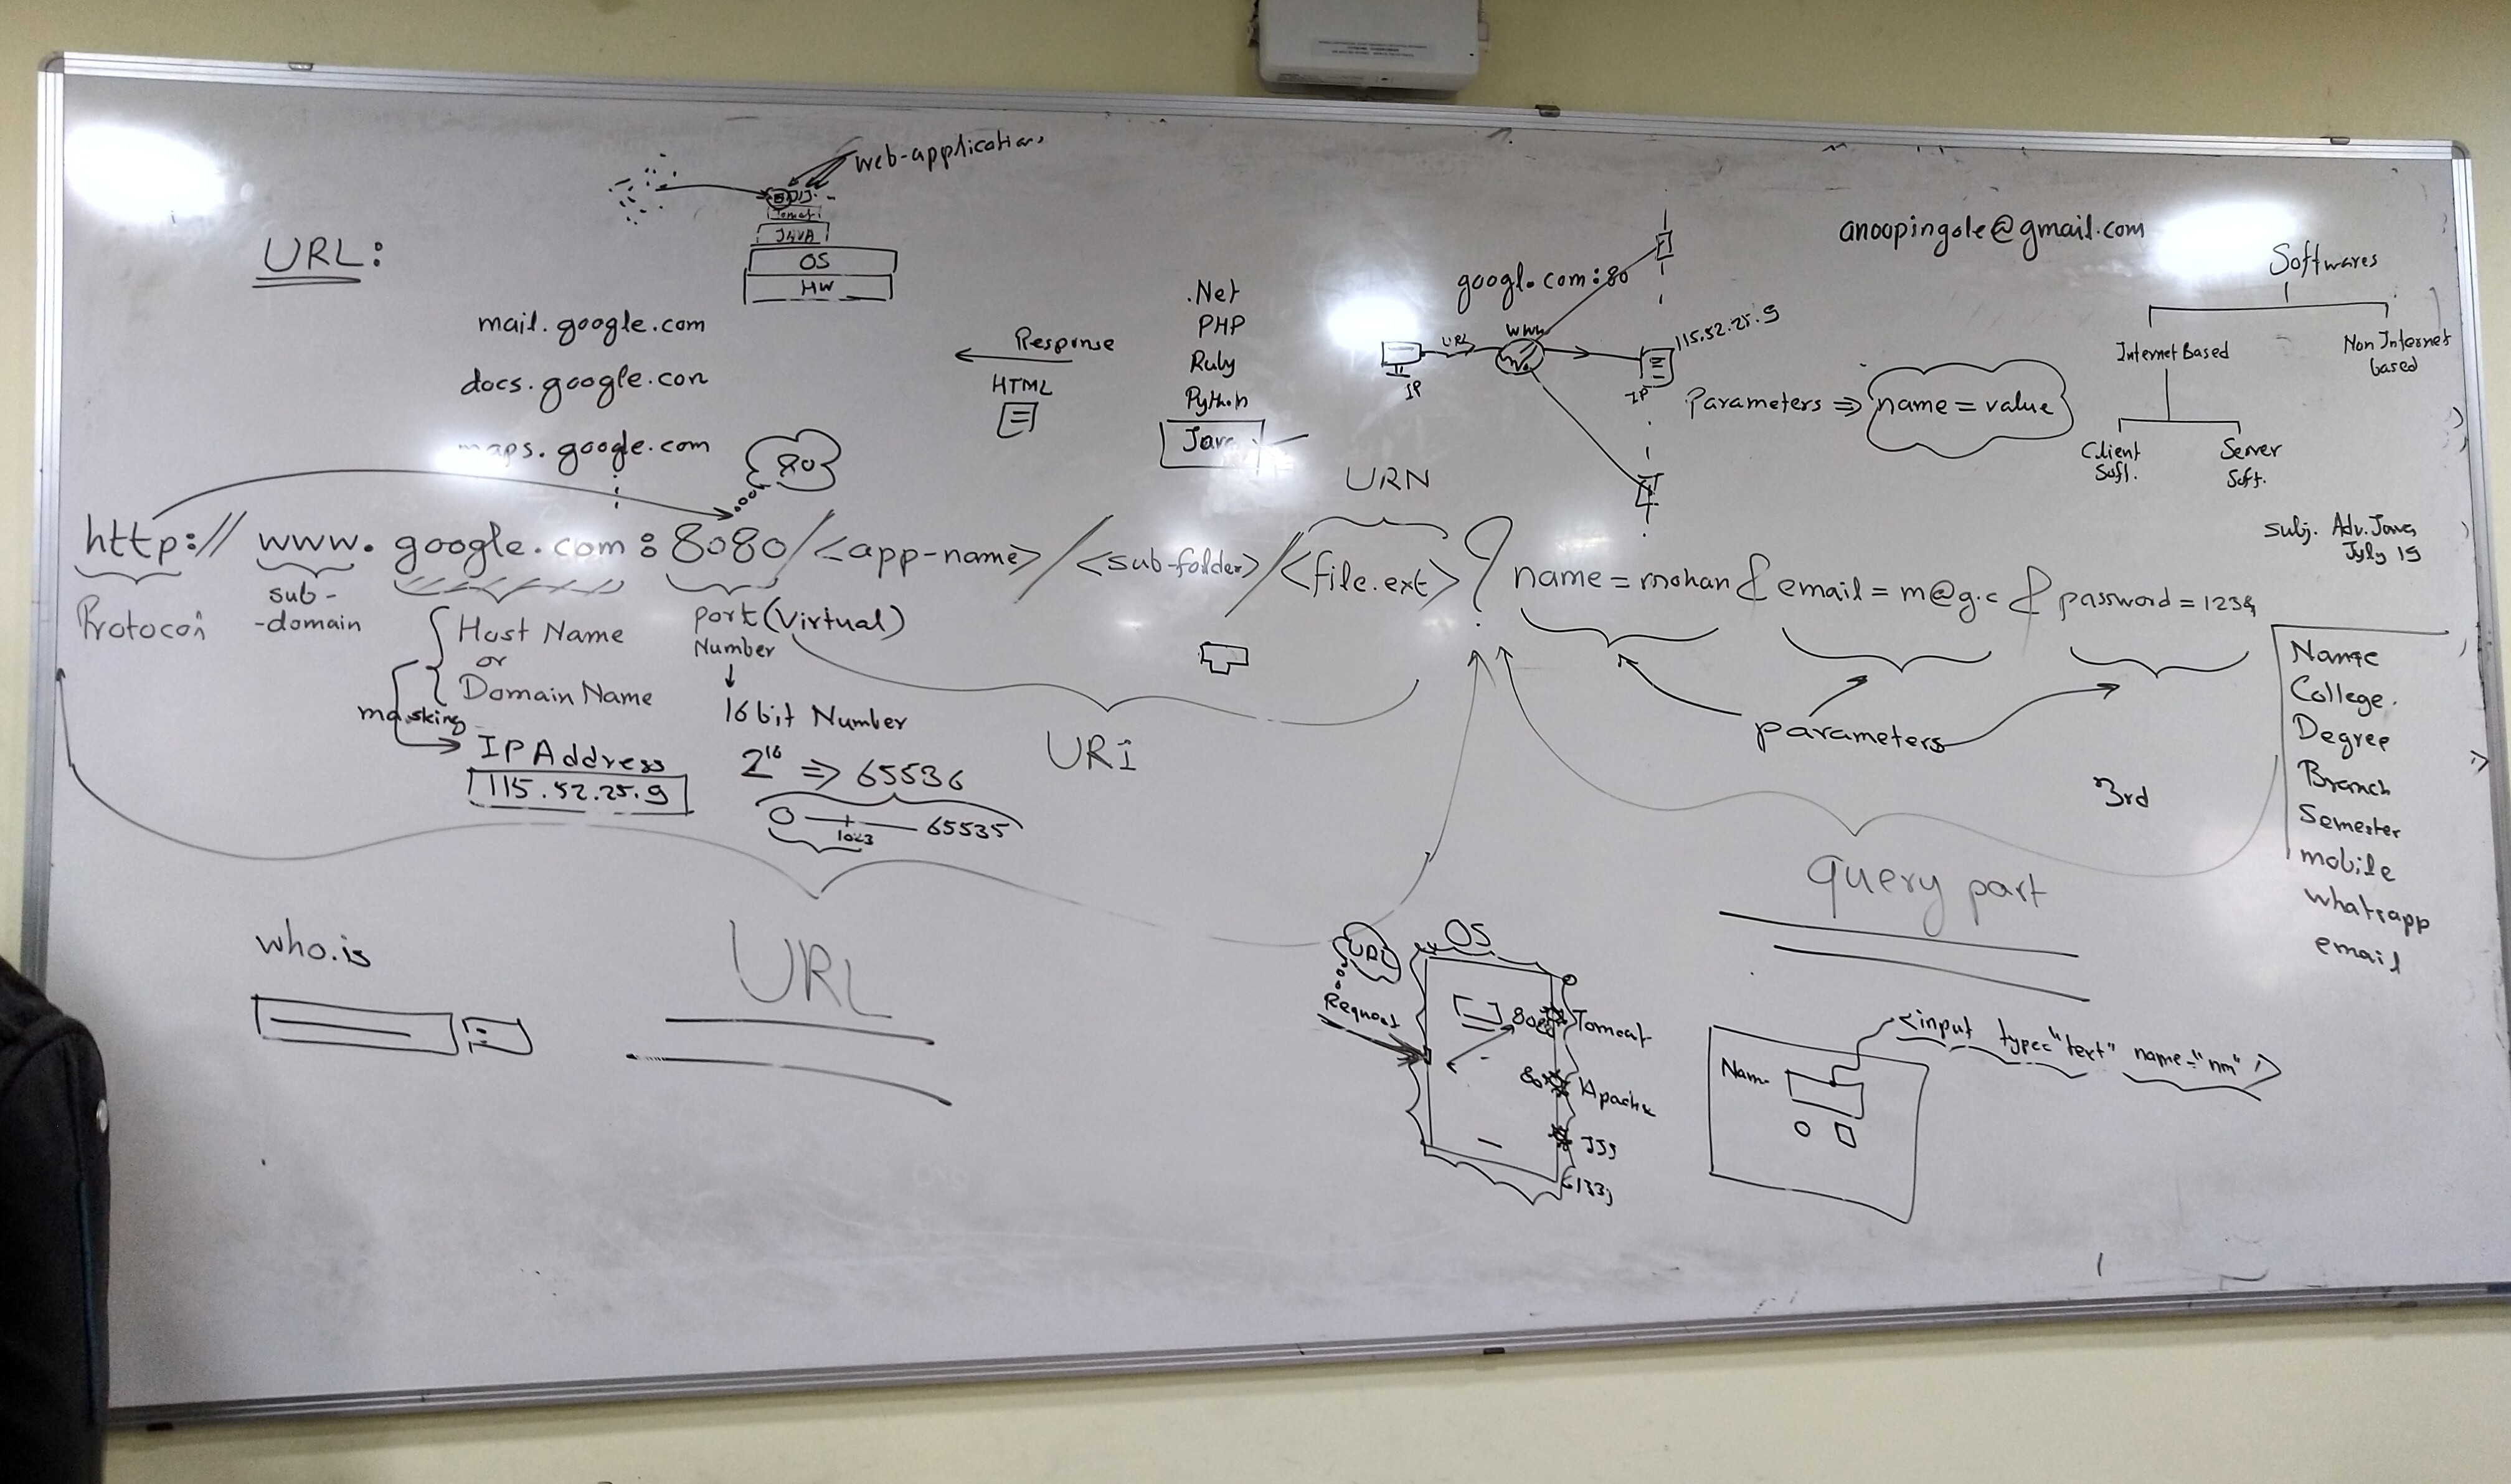 web-applications
Tomcat
JAVA
OS
HW
URL:
mail.google.com
docs.google.con
maps.google.com
80
Response
HTML
.Net
PHP
Ruby
Python
Java
google.com:80
www
URL
IP
115.52.25.9
IP
anoopingole@gmail.com
Parameters ⇒ name = value
Softwares
Internet Based
Non Internet
based
Client
Soft.
Server
Soft.
Subj. Adv. Java
July 19
URN
http://www.google.com:8080/<app-name>/<sub-folder>/<file.ext>? name = mohan & email = m@g.c & password = 1234
Protocol
sub-
-domain
Host Name
or
Domain Name
masking
IP Address
115.52.25.9
port (Virtual)
Number
↓
16 bit Number
2^16 ⇒ 65536
0 — 1023 — 65535
URI
parameters
3rd
Name
College.
Degree
Branch
Semester
mobile
whatsapp
email
query part
who.is
URL
URL
Request
OS
Tomcat
Apache
Name
<input type="text" name="nm" />